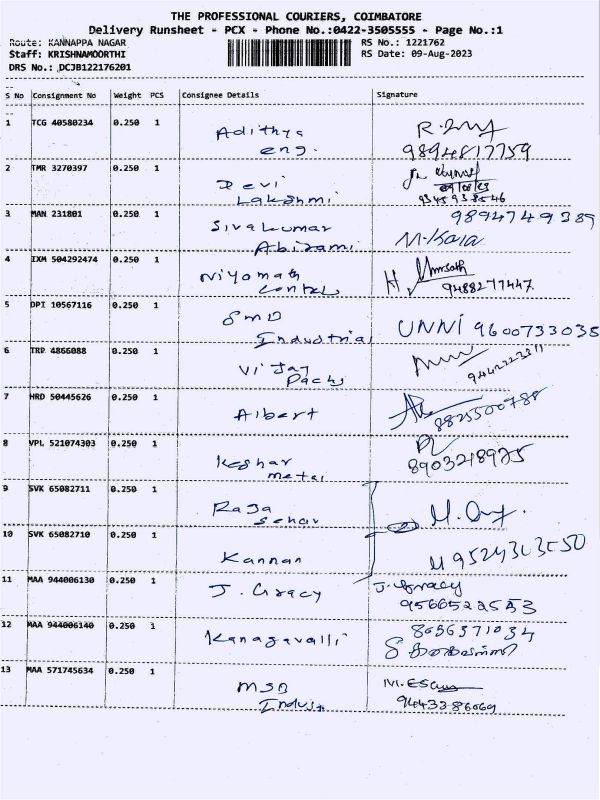 THE PROFESSIONAL COURIERS, COIMBATORE
Delivery Runsheet - PCX - Phone No.:0422-3505555 - Page No.:1
Route: KANNAPPA NAGAR RS No.: 1221762
Staff: KRISHNAMOORTHI RS Date: 09-Aug-2023
DRS No.: DCJB122176201
S No Consignment No Weight PCS Consignee Details Signature
1 TCG 40580234 0.250 1 Adithya
eng. 9894817759
2 TMR 3270397 0.250 1 Devi
09/08/23
Lakshmi 9345938546
3 MAN 231801 0.250 1 Sivakumar 9894749389
Abirami M. Kala
4 IXM 504292474 0.250 1 Niyamath
9488277447
5 DPI 10567116 0.250 1 SMD
Industrial UNNI 9600733035
6 TRP 4866088 0.250 1 Vijay
Packs
7 HRD 50445626 0.250 1 Albert 8825500788
8 VPL 521074303 0.250 1 Keshar
metal 8903218975
9 SVK 65082711 0.250 1 Raja
Sekar
10 SVK 65082710 0.250 1 Kannan
11 MAA 944006130 0.250 1 J. Gracy J. Gracy
9566522553
12 MAA 944006140 0.250 1 Kanagavalli 8056371034
13 MAA 571745634 0.250 1 MSD
Indust 9443386069